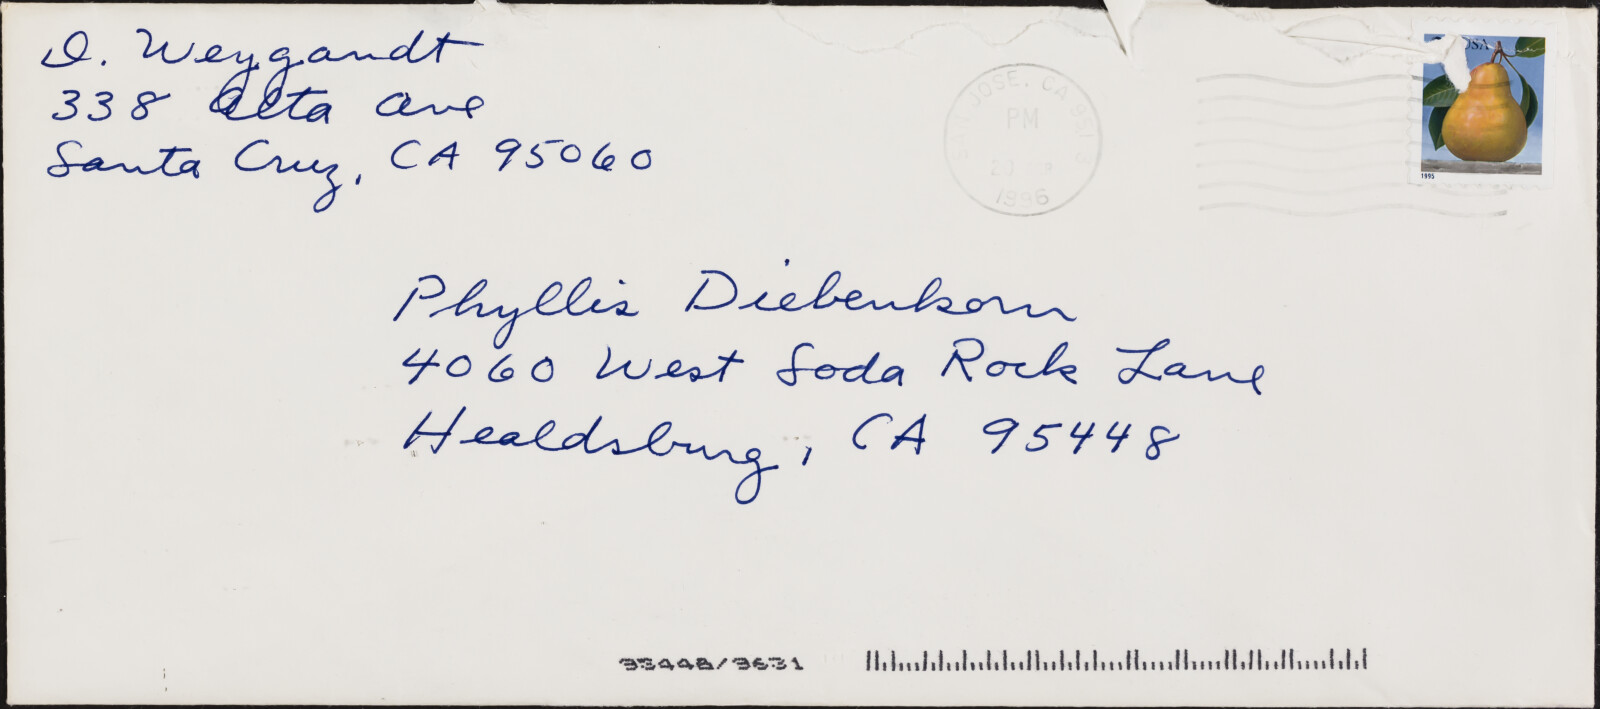 D. Weygandt
338 Alta Ave
Santa Cruz, CA 95060
SAN JOSE, CA 951
PM
1996
USA
1995
Phyllis Diebenkorn
4060 West Soda Rock Lane
Healdsburg, CA 95448
95448/9631